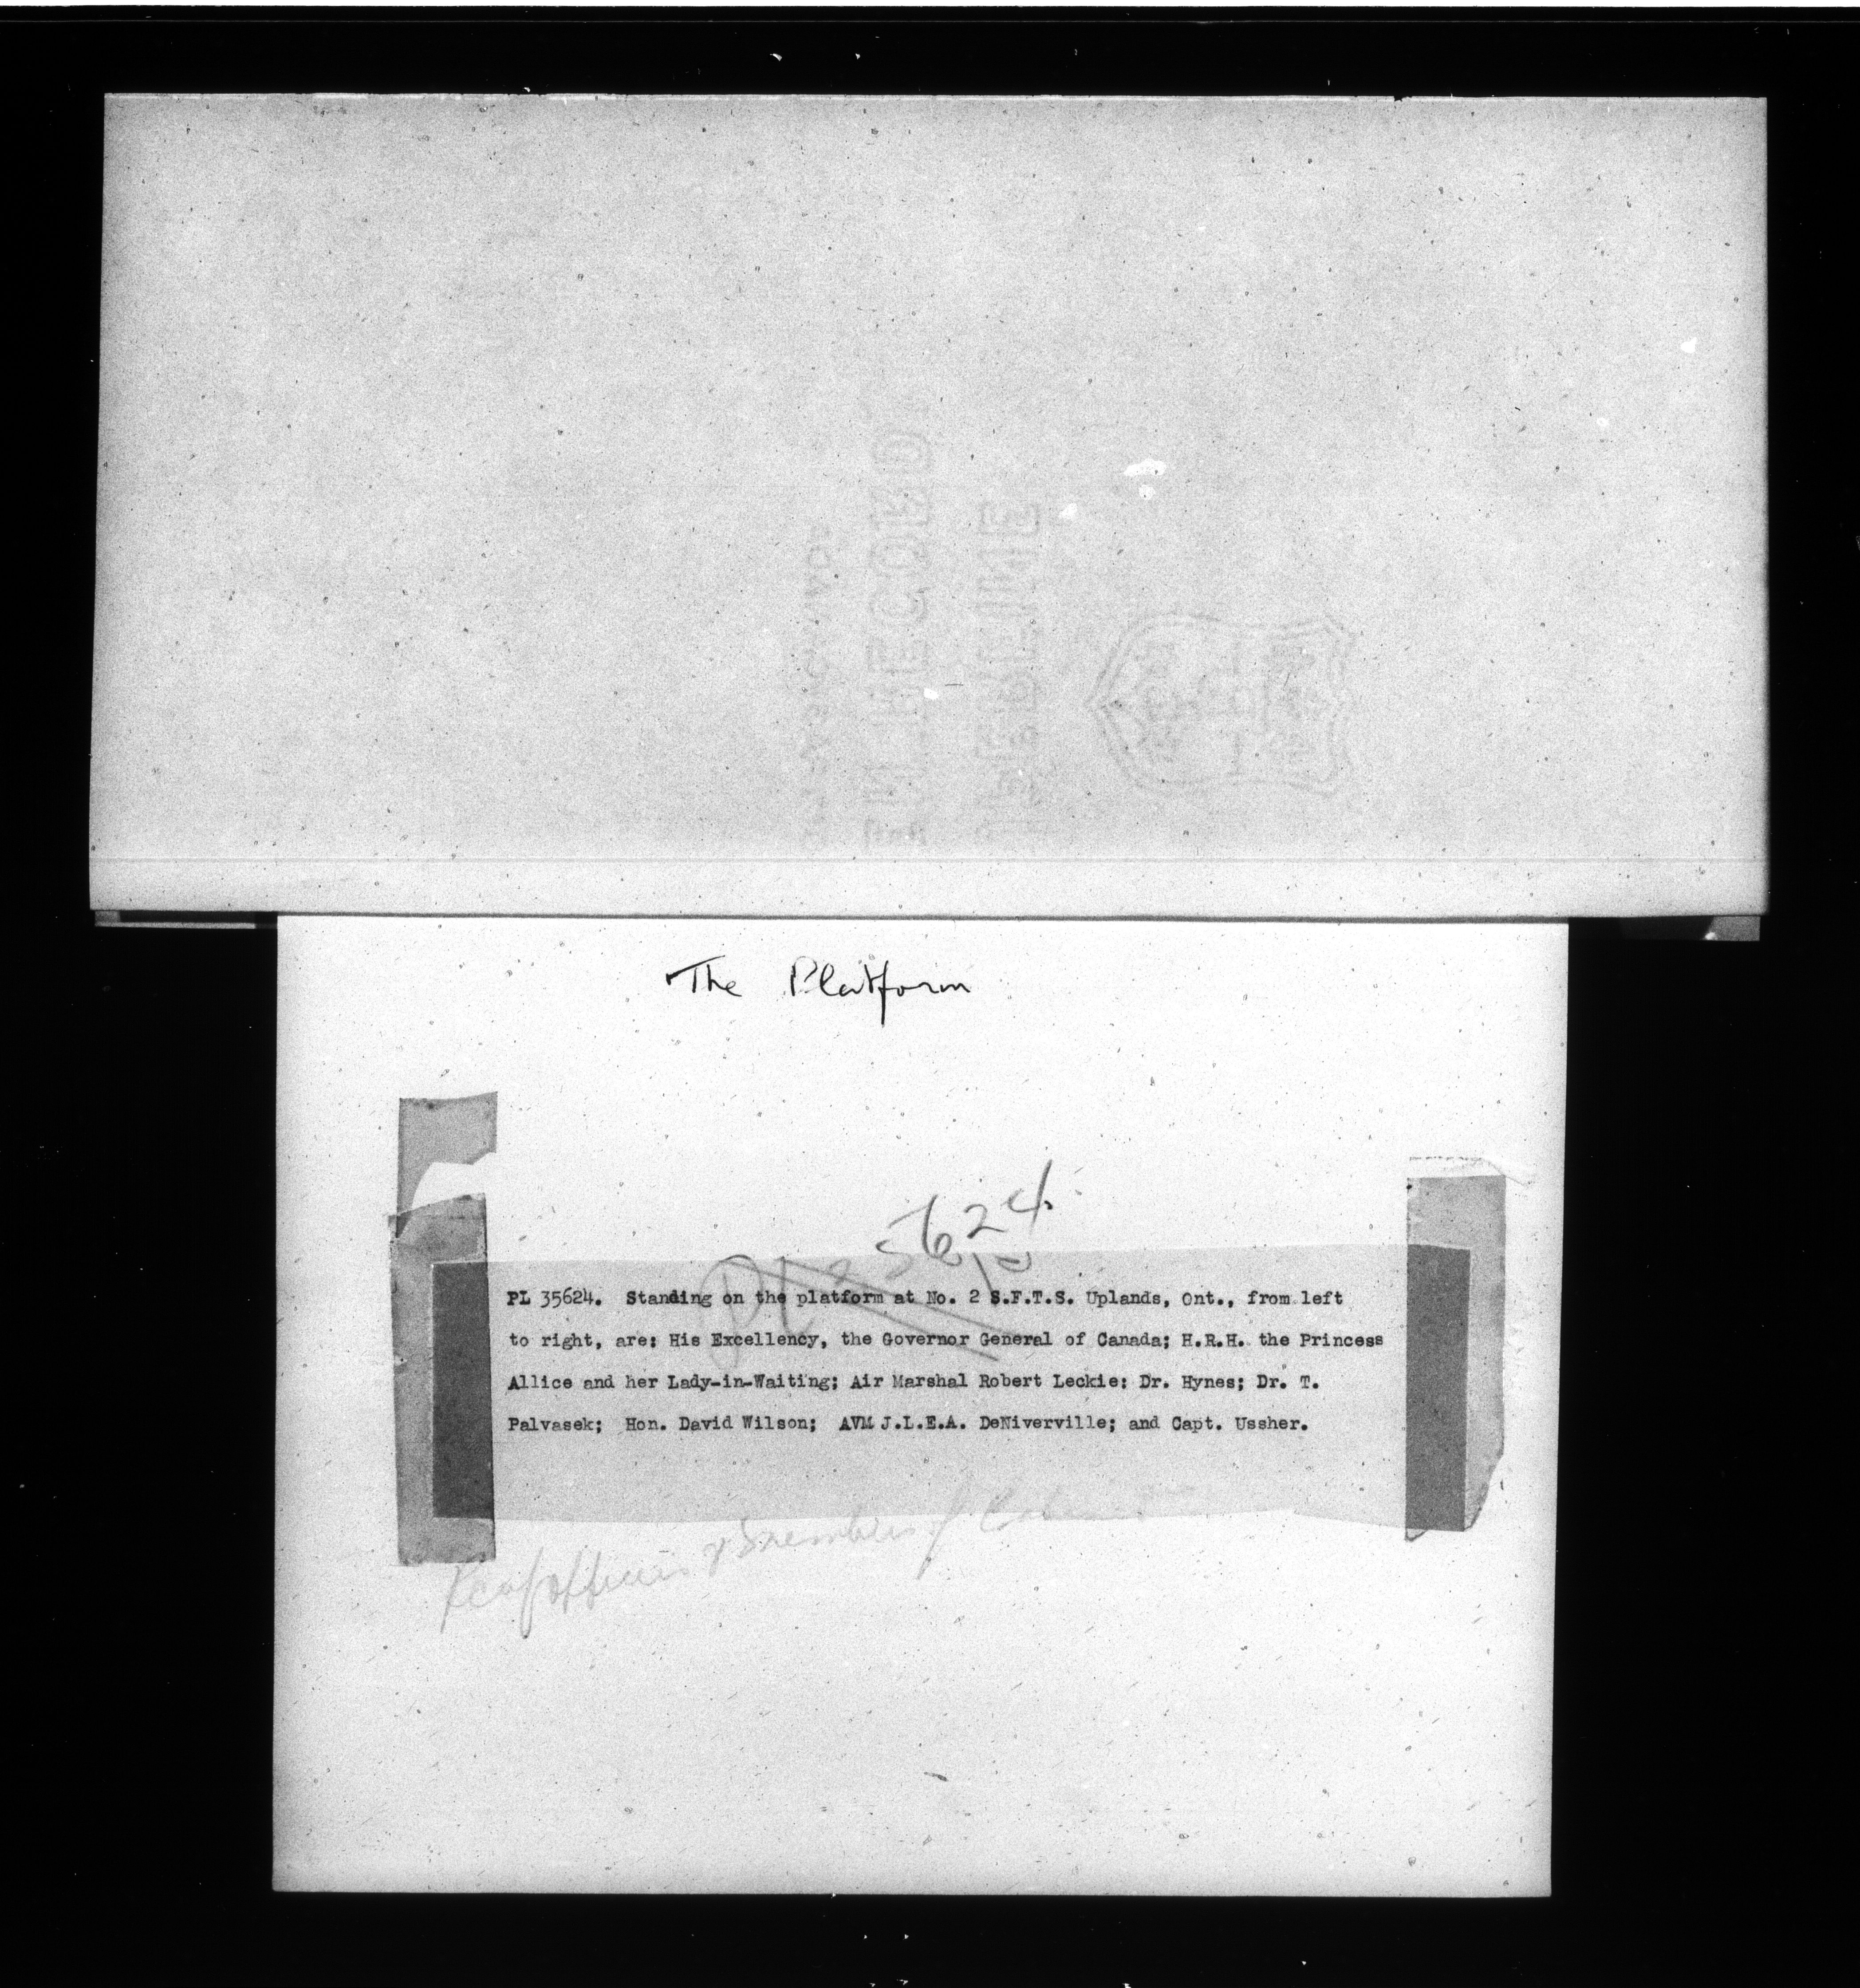 The Platform
5624
PL 35624. Standing on the platform at No. 2 S.F.T.S. Uplands, Ont., from left
to right, are: His Excellency, the Governor General of Canada; H.R.H. the Princess
Allice and her Lady-in-Waiting; Air Marshal Robert Leckie: Dr. Hynes; Dr. T.
Palvasek; Hon. David Wilson; AVM J.L.E.A. DeNiverville; and Capt. Ussher.
members of